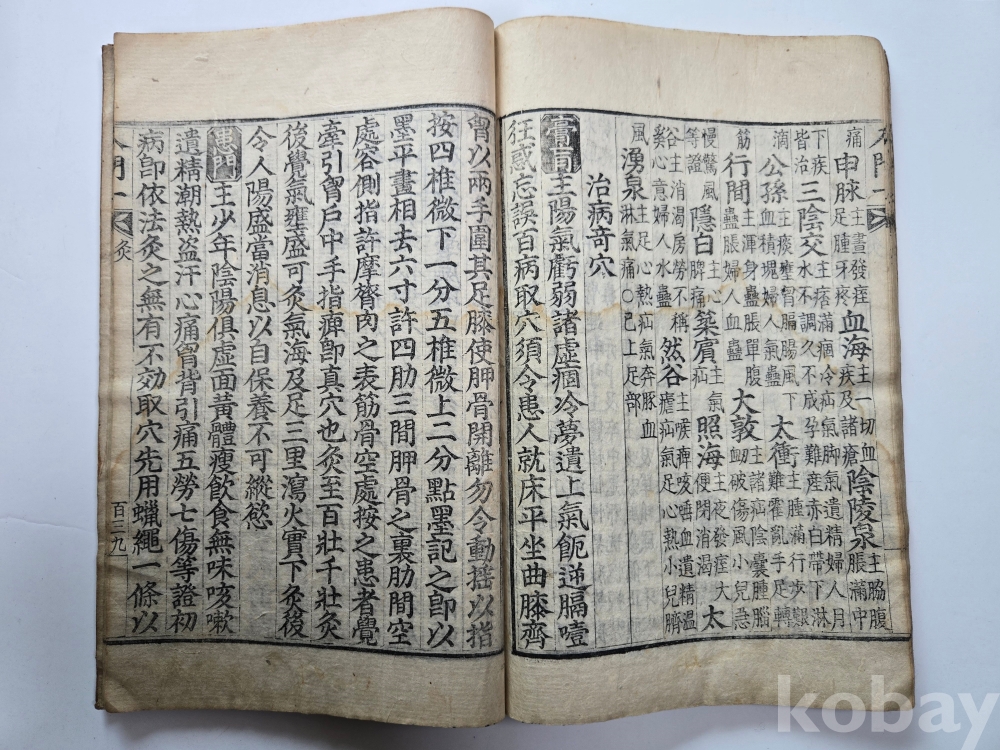 痛 申脉 主晝發痓足腫牙疼 血海 主一切血疾及諸瘡 陰陵泉 主脇腹脹滿中
下疾皆治 三陰交 主痞滿痼冷疝氣脚氣遺精婦人月水不調久不成孕難産赤白帶下淋
滴 公孫 主痰壅胷膈腸風下血積塊婦人氣蠱 太衝 主腫滿行步艱難霍亂手足轉
筋 行間 主渾身蠱脹單腹蠱脹婦人血蠱 大敦 主諸疝陰囊腫腦衂破傷風小兒急
慢驚風等證 隱白 主心脾痛 築賔 主氣疝 照海 主夜發痓大便閉消渴 太
谿 主消渴房勞不稱心意婦人水蠱 然谷 主喉痺咳唾血遺精溫瘧疝氣足心熱小兒臍
風 湧泉 主足心熱疝氣奔豚血淋氣痛○已上足部
治病奇穴
膏肓 主陽氣虧弱諸虛痼冷夢遺上氣飥逆膈噎
狂惑忘誤百病取穴須令患人就床平坐曲膝齊
胷以兩手圍其足膝使胛骨開離勿令動揺以指
按四椎微下一分五椎微上二分點墨記之卽以
墨平畫相去六寸許四肋三間胛骨之裏肋間空
處容側指許摩膂肉之表筋骨空處按之患者覺
牽引胷戶中手指痺卽真穴也灸至百壯千壯灸
後覺氣壅盛可灸氣海及足三里瀉火實下灸後
令人陽盛當消息以自保養不可縱慾
患門 主少年陰陽俱虛面黃體瘦飮食無味咳嗽
遺精潮熱盗汗心痛胷背引痛五勞七傷等證初
病卽依法灸之無有不効取穴先用蠟繩一條以
門一 灸
百三九
kobay